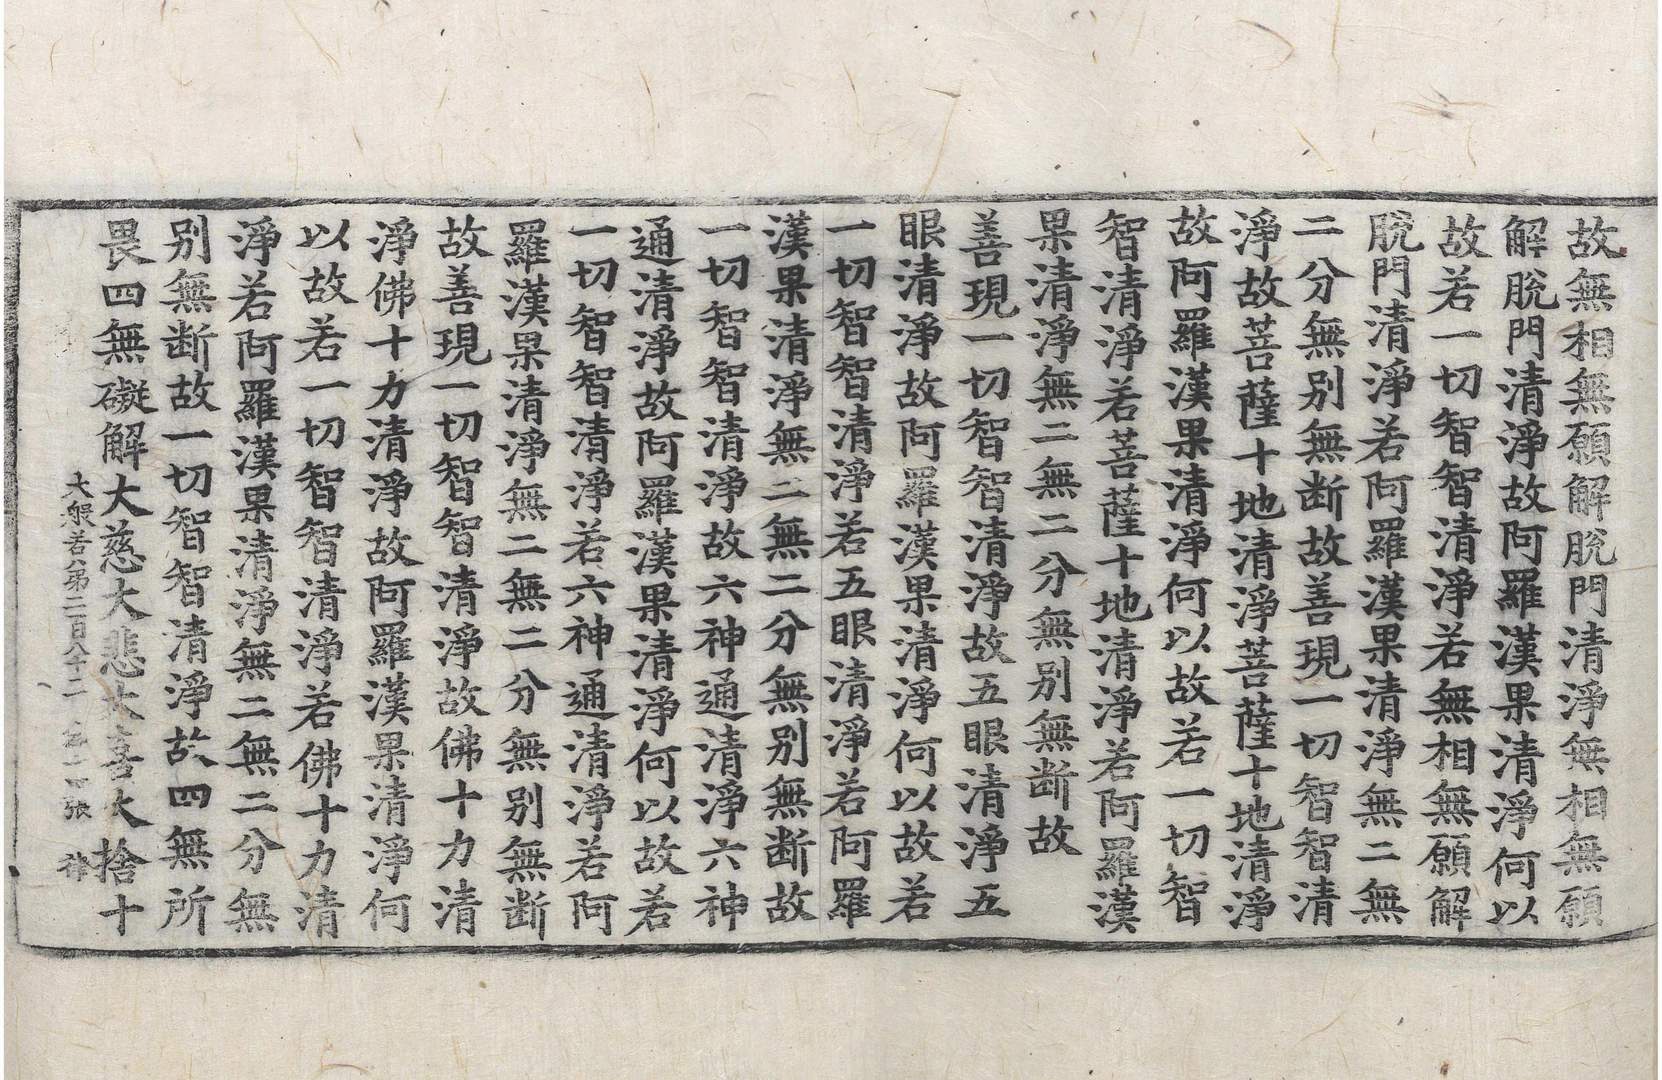 故無相無願解脫門清淨無相無願
解脫門清淨故阿羅漢果清淨何以
故若一切智智清淨若無相無願解
脫門清淨若阿羅漢果清淨無二無
二分無別無断故善現一切智智清
淨故菩薩十地清淨菩薩十地清淨
故阿羅漢果清淨何以故若一切智
智清淨若菩薩十地清淨若阿羅漢
果清淨無二無二分無別無断故
善現一切智智清淨故五眼清淨五
眼清淨故阿羅漢果清淨何以故若
一切智智清淨若五眼清淨若阿羅
漢果清淨無二無二分無別無断故
一切智智清淨故六神通清淨六神
通清淨故阿羅漢果清淨何以故若
一切智智清淨若六神通清淨若阿
羅漢果清淨無二無二分無別無断
故善現一切智智清淨故佛十力清
淨佛十力清淨故阿羅漢果清淨何
以故若一切智智清淨若佛十力清
淨若阿羅漢果清淨無二無二分無
別無断故一切智智清淨故四無所
畏四無礙解大慈大悲大喜大捨十
大般若第二百八十二 張